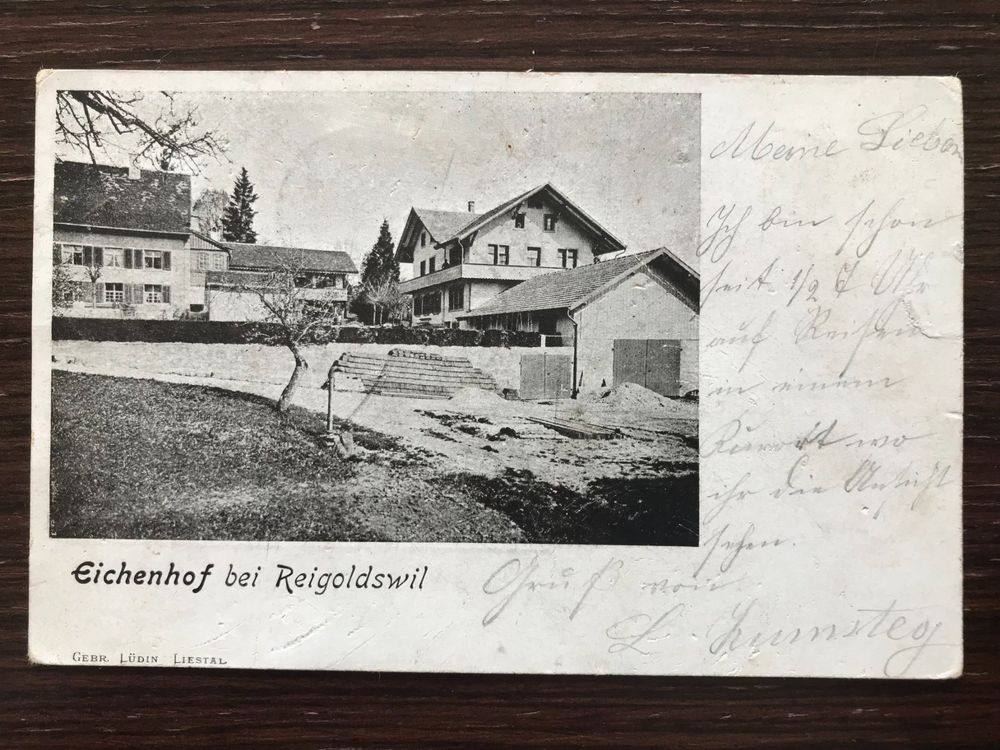 Meine Lieben
Ich bin schon
seit 1/2 7 Uhr
auf Reisen
an einem
Kurort wo
ihr die Ansicht
sehen.
Gruß von
L. Zumsteg
Eichenhof bei Reigoldswil
GEBR. LÜDIN LIESTAL